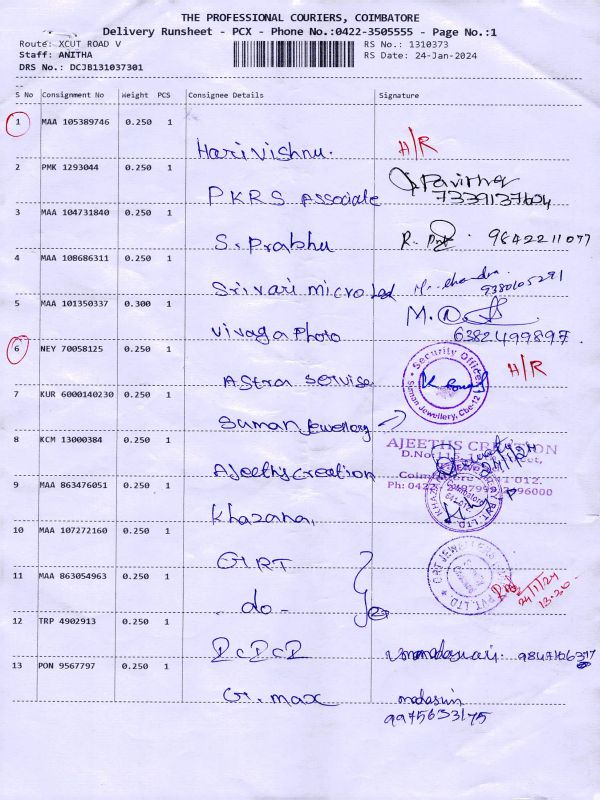 THE PROFESSIONAL COURIERS, COIMBATORE
Delivery Runsheet - PCX - Phone No.:0422-3505555 - Page No.:1
Route: XCUT ROAD V RS No.: 1310373
Staff: ANITHA RS Date: 24-Jan-2024
DRS No.: DCJB131037301
S No Consignment No Weight PCS Consignee Details Signature
1 MAA 105389746 0.250 1
Hari Vishnu. H/R
2 PMK 1293044 0.250 1
PKRS Associate Pavithra
7339137604
3 MAA 104731840 0.250 1
S. Prabhu R. 9842211077
4 MAA 108686311 0.250 1
Srivari micro Led M. chandra
9380105291
5 MAA 101350337 0.300 1
Vivaga Photo M.
6382499897.
6 NEY 70058125 0.250 1
Astra Servise H/R
Security Officer
Suman Jewellery, Cbe-12
7 KUR 6000140230 0.250 1
Suman Jewellery
8 KCM 13000384 0.250 1
AJEETHS CREATION
D.No
Ajeeths Creation 24/1/24
Coimbatore 012.
Ph: 0422-
9 MAA 863476051 0.250 1
Khazana,
10 MAA 107272160 0.250 1
GRT
GRT JEWELLERS PVT. LTD
11 MAA 863054963 0.250 1
- do - 24/1/24
13.20
12 TRP 4902913 0.250 1
DCDCD
13 PON 9567797 0.250 1
G. max
9975633175